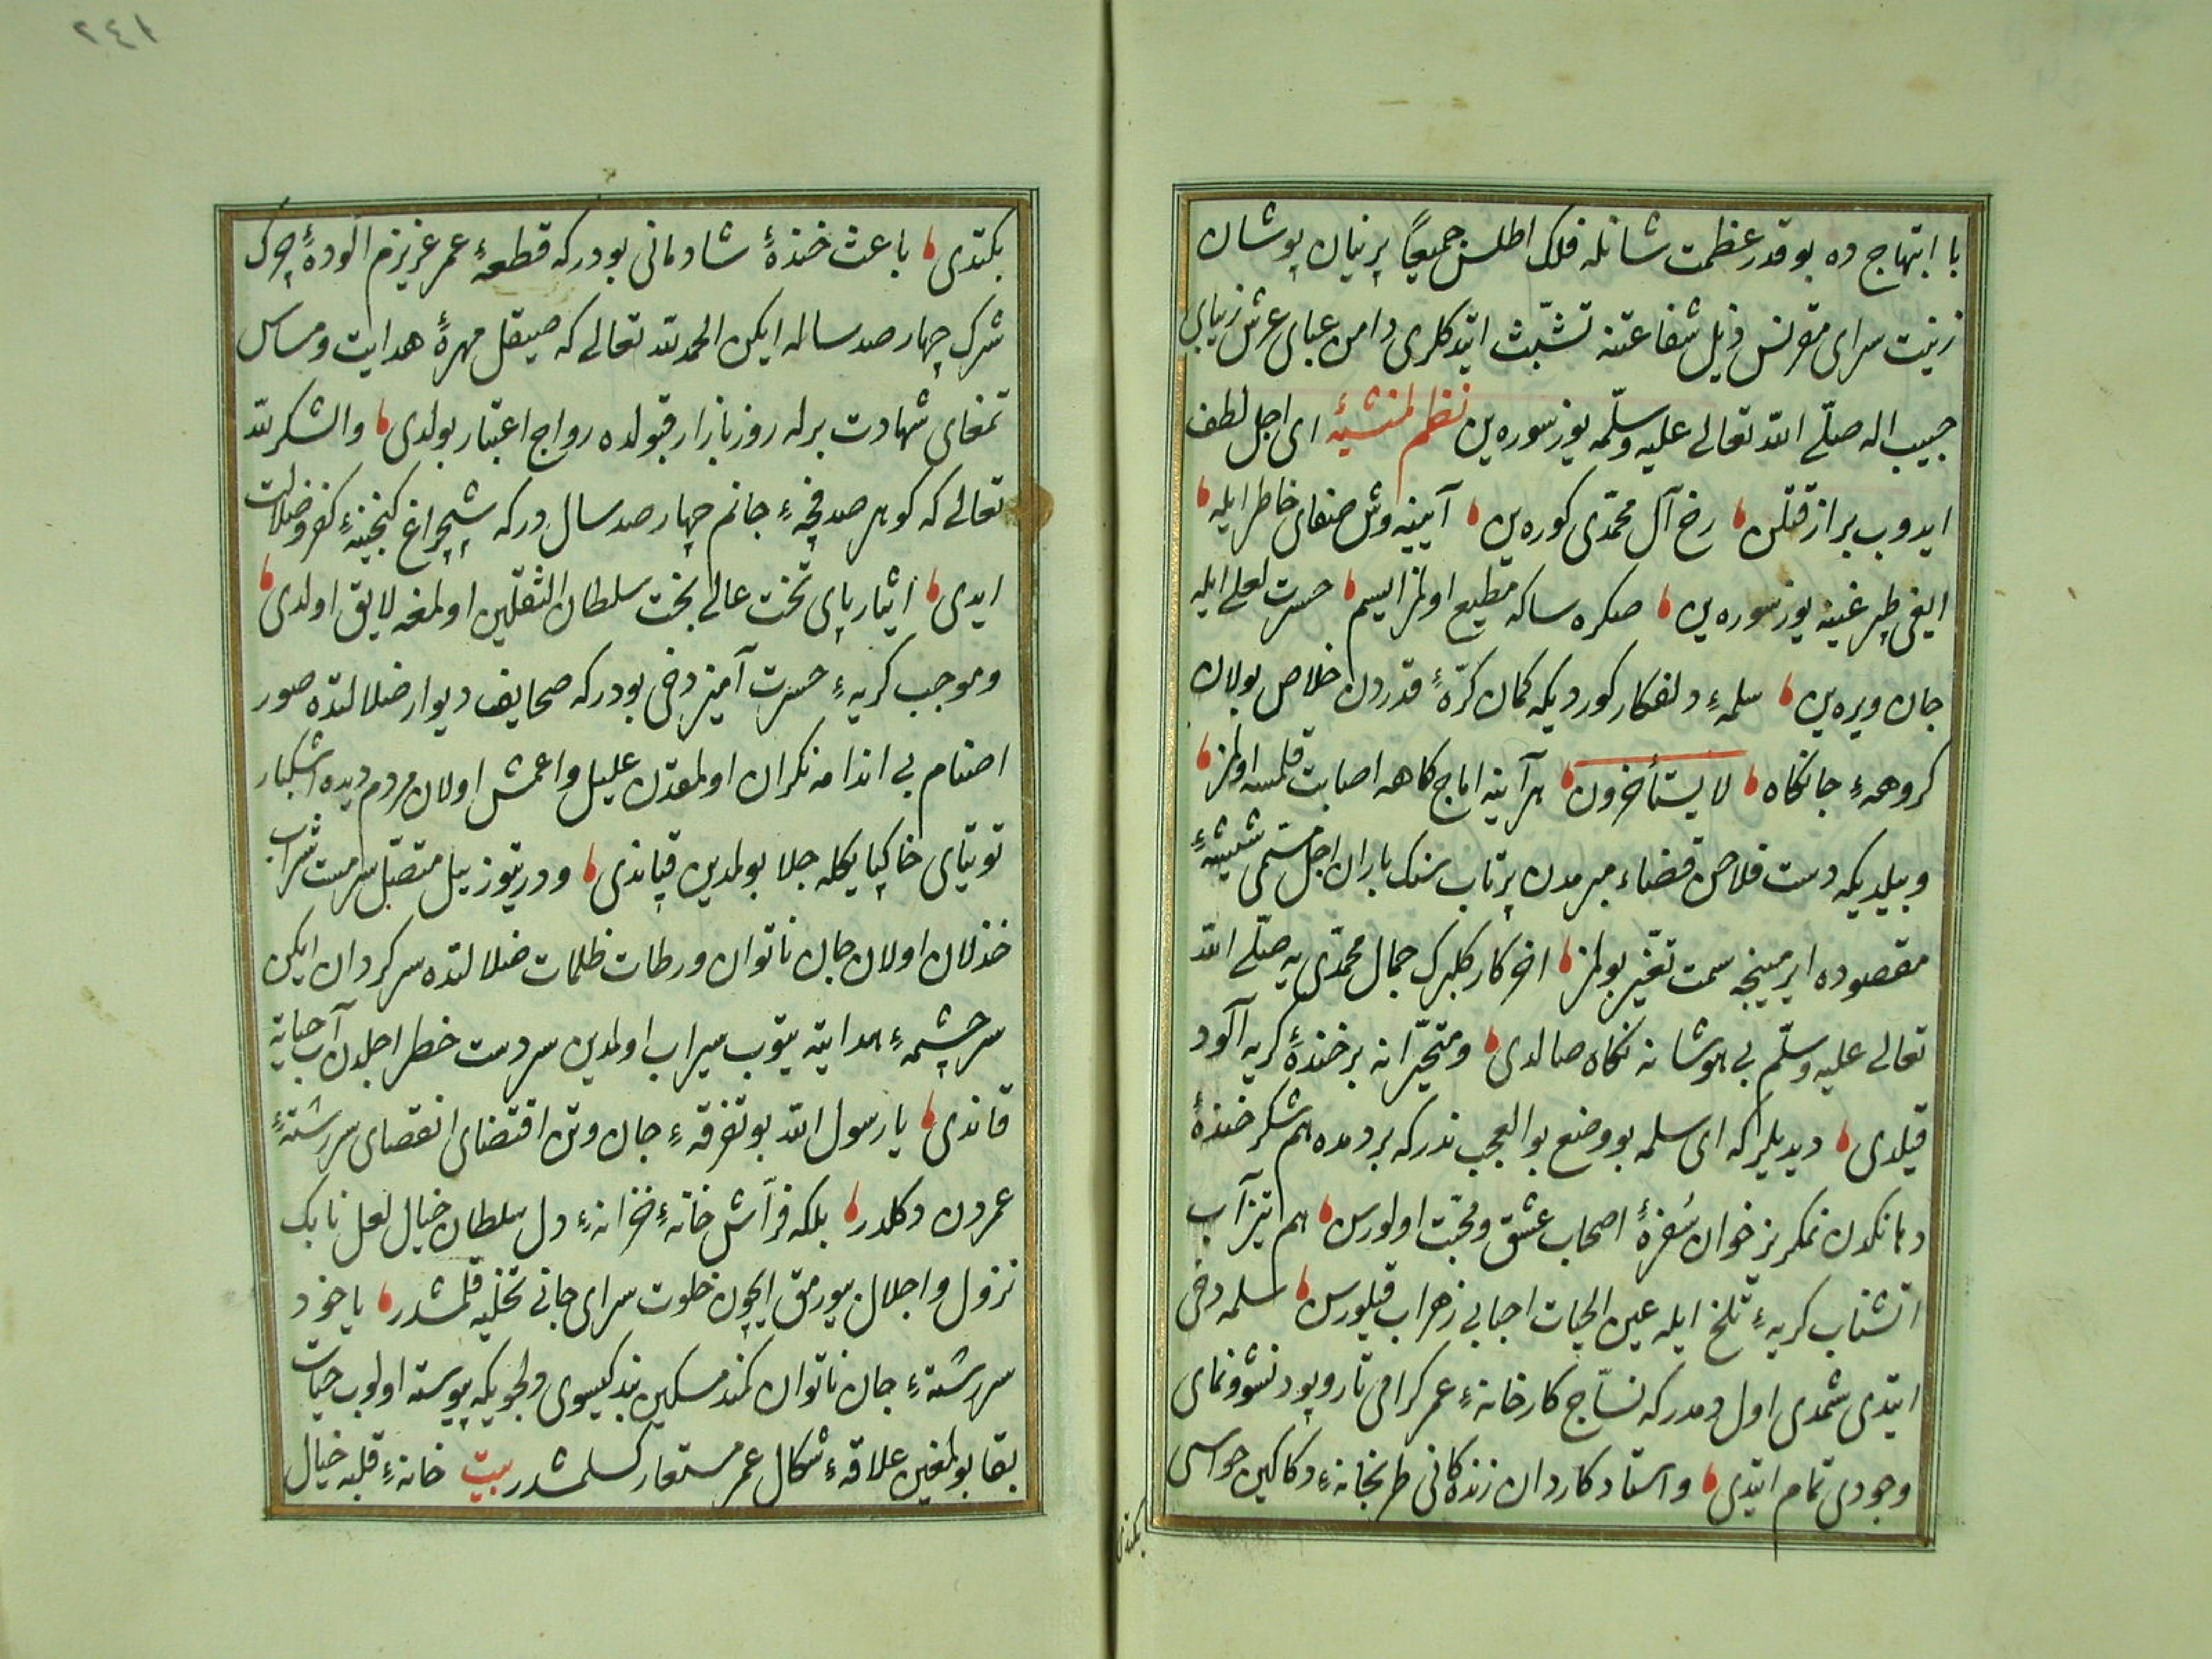 با ابتهاج ده بو قدر عظمت شانله فلك اطلس جميعاً پرنيان پوشان
زينت سراى مقرنس ذيل شفاعتنه تشبّث ايتدكلرى دامن عباى عرش زيباى
حبيب اله صلّے الله تعالے عليه وسلّمه يوز سوره ين نظم لمنشيه اى اجل لطف
ايدوب براز قتلن رخ آل محمّدى كوره ين آيينه وش صفاى خاطر ايله
ايغى طپرغينه يوز سوره ين صكره ساكه مطيع اولمز ايسم حسرت لعلى ايله
جان ويره ين سلمهٔ دلفكار كورديكه كمان كرّهٔ قدردن خلاص بولان
كروههٔ جانكاه لا يستأخرون هرآينه اماج كاهه اصابت قلمسه اولمز
وبيلديكه دست فلاخن قضاء مبرمدن پرتاب سنك باران اجل مسمى شيشهٔ
مقصوده ايرمينجه سمت تغيّر بولمز اخر كار كلبرك جمال محمّدى يه صلّے الله
تعالى عليه وسلّم بى هوشانه نكاه صالدى ومتحيّرانه بر خندهٔ كريه آلود
قيلدى ديديلر كه اى سلمه بو وضع بو العجب ندر كه بر دمده هم شكر خندهٔ
دهانكدن نمكريز خوان سُفرهٔ اصحاب عشق ومحبّت اولورسن هم تيزآب
انشتاب كريهٔ تلخ ايله عين الحيات احبابى زهراب قيلورسن سلمه دخى
ايتدى شمدى اول دمدر كه نسّاج كارخانهٔ عمر كرامى تار وپود نشو ونماى
وجودى تمام ايتدى واستاد كاردان زندكانى طربخانهٔ دكاكين حواسى
بكتدى
بكتدى باعث خندهٔ شادمانى بودر كه قطعهٔ عمر عزيزم الودهٔ چرك
شرك چهار صد ساله ايكن الحمد لله تعالے كه صيقل مهرهٔ هدايت ومساس
تمغاى شهادت برله روز بازار قبولده رواج اعتبار بولدى والشكر لله
تعالے كه كوهر صدفچهٔ جانم چهار صد سال در كه شبچراغ كنجينهٔ كفر وضلالت
ايدى ايثار پاى تخت عالے بخت سلطان الثقلين اولمغه لايق اولدى
وموجب كريهٔ حسرت آميز دخى بودر كه صحايف ديوار ضلالتده صور
اصنام بى اندامه نكران اولمقدن عليل واعمش اولان مردم ديده اشكبار
توتياى خاكپايكله جلا بولمدين قپاندى ودرت يوز ييل متصّل سرمست شراب
خذلان اولان جان ناتوان ورطات ظلمات ضلالتده سركردان ايكن
سرچشمهٔ هدايته يتوب سيراب اولمدين سر دست خطر اجلدن آب حياته
قاندى يا رسول الله بو تفرقهٔ جان وتن اقتضاى انقصاى سررشتهٔ
عمردن دكلدر بلكه فرّاش خانهٔ خزانهٔ دل سلطان خيال لعل نابك
نزول واجلال بيورمق ايچون خلوت سراى جانى تخليه قلمشدر ياخود
سررشتهٔ جان ناتوان كمند مسكين بند كيسوى دلجويكه پيوسته اولوب حيات
بقا بولمغين علاقهٔ شكال عمر مستعار كسلمشدر بيت خانهٔ قلبه خيال
٢٤١